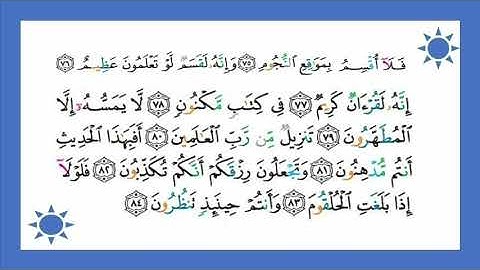 فَلَآ أُقْسِمُ بِمَوَٰقِعِ ٱلنُّجُومِ ۝٧٥ وَإِنَّهُۥ لَقَسَمٌ لَّوْ تَعْلَمُونَ عَظِيمٌ ۝٧٦
إِنَّهُۥ لَقُرْءَانٌ كَرِيمٌ ۝٧٧ فِى كِتَٰبٍ مَّكْنُونٍ ۝٧٨ لَّا يَمَسُّهُۥٓ إِلَّا
ٱلْمُطَهَّرُونَ ۝٧٩ تَنزِيلٌ مِّن رَّبِّ ٱلْعَٰلَمِينَ ۝٨٠ أَفَبِهَٰذَا ٱلْحَدِيثِ
أَنتُم مُّدْهِنُونَ ۝٨١ وَتَجْعَلُونَ رِزْقَكُمْ أَنَّكُمْ تُكَذِّبُونَ ۝٨٢ فَلَوْلَآ
إِذَا بَلَغَتِ ٱلْحُلْقُومَ ۝٨٣ وَأَنتُمْ حِينَئِذٍ تَنظُرُونَ ۝٨٤